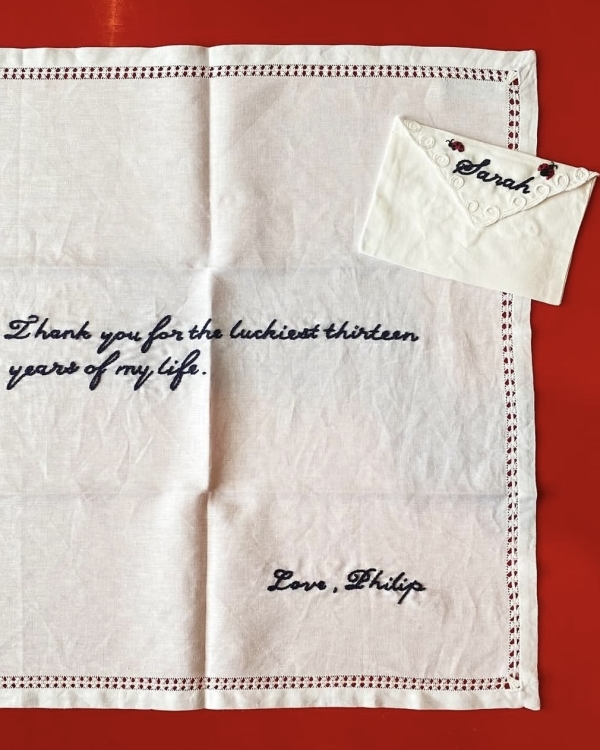 Sarah
Thank you for the luckiest thirteen
years of my life.
Love, Philip